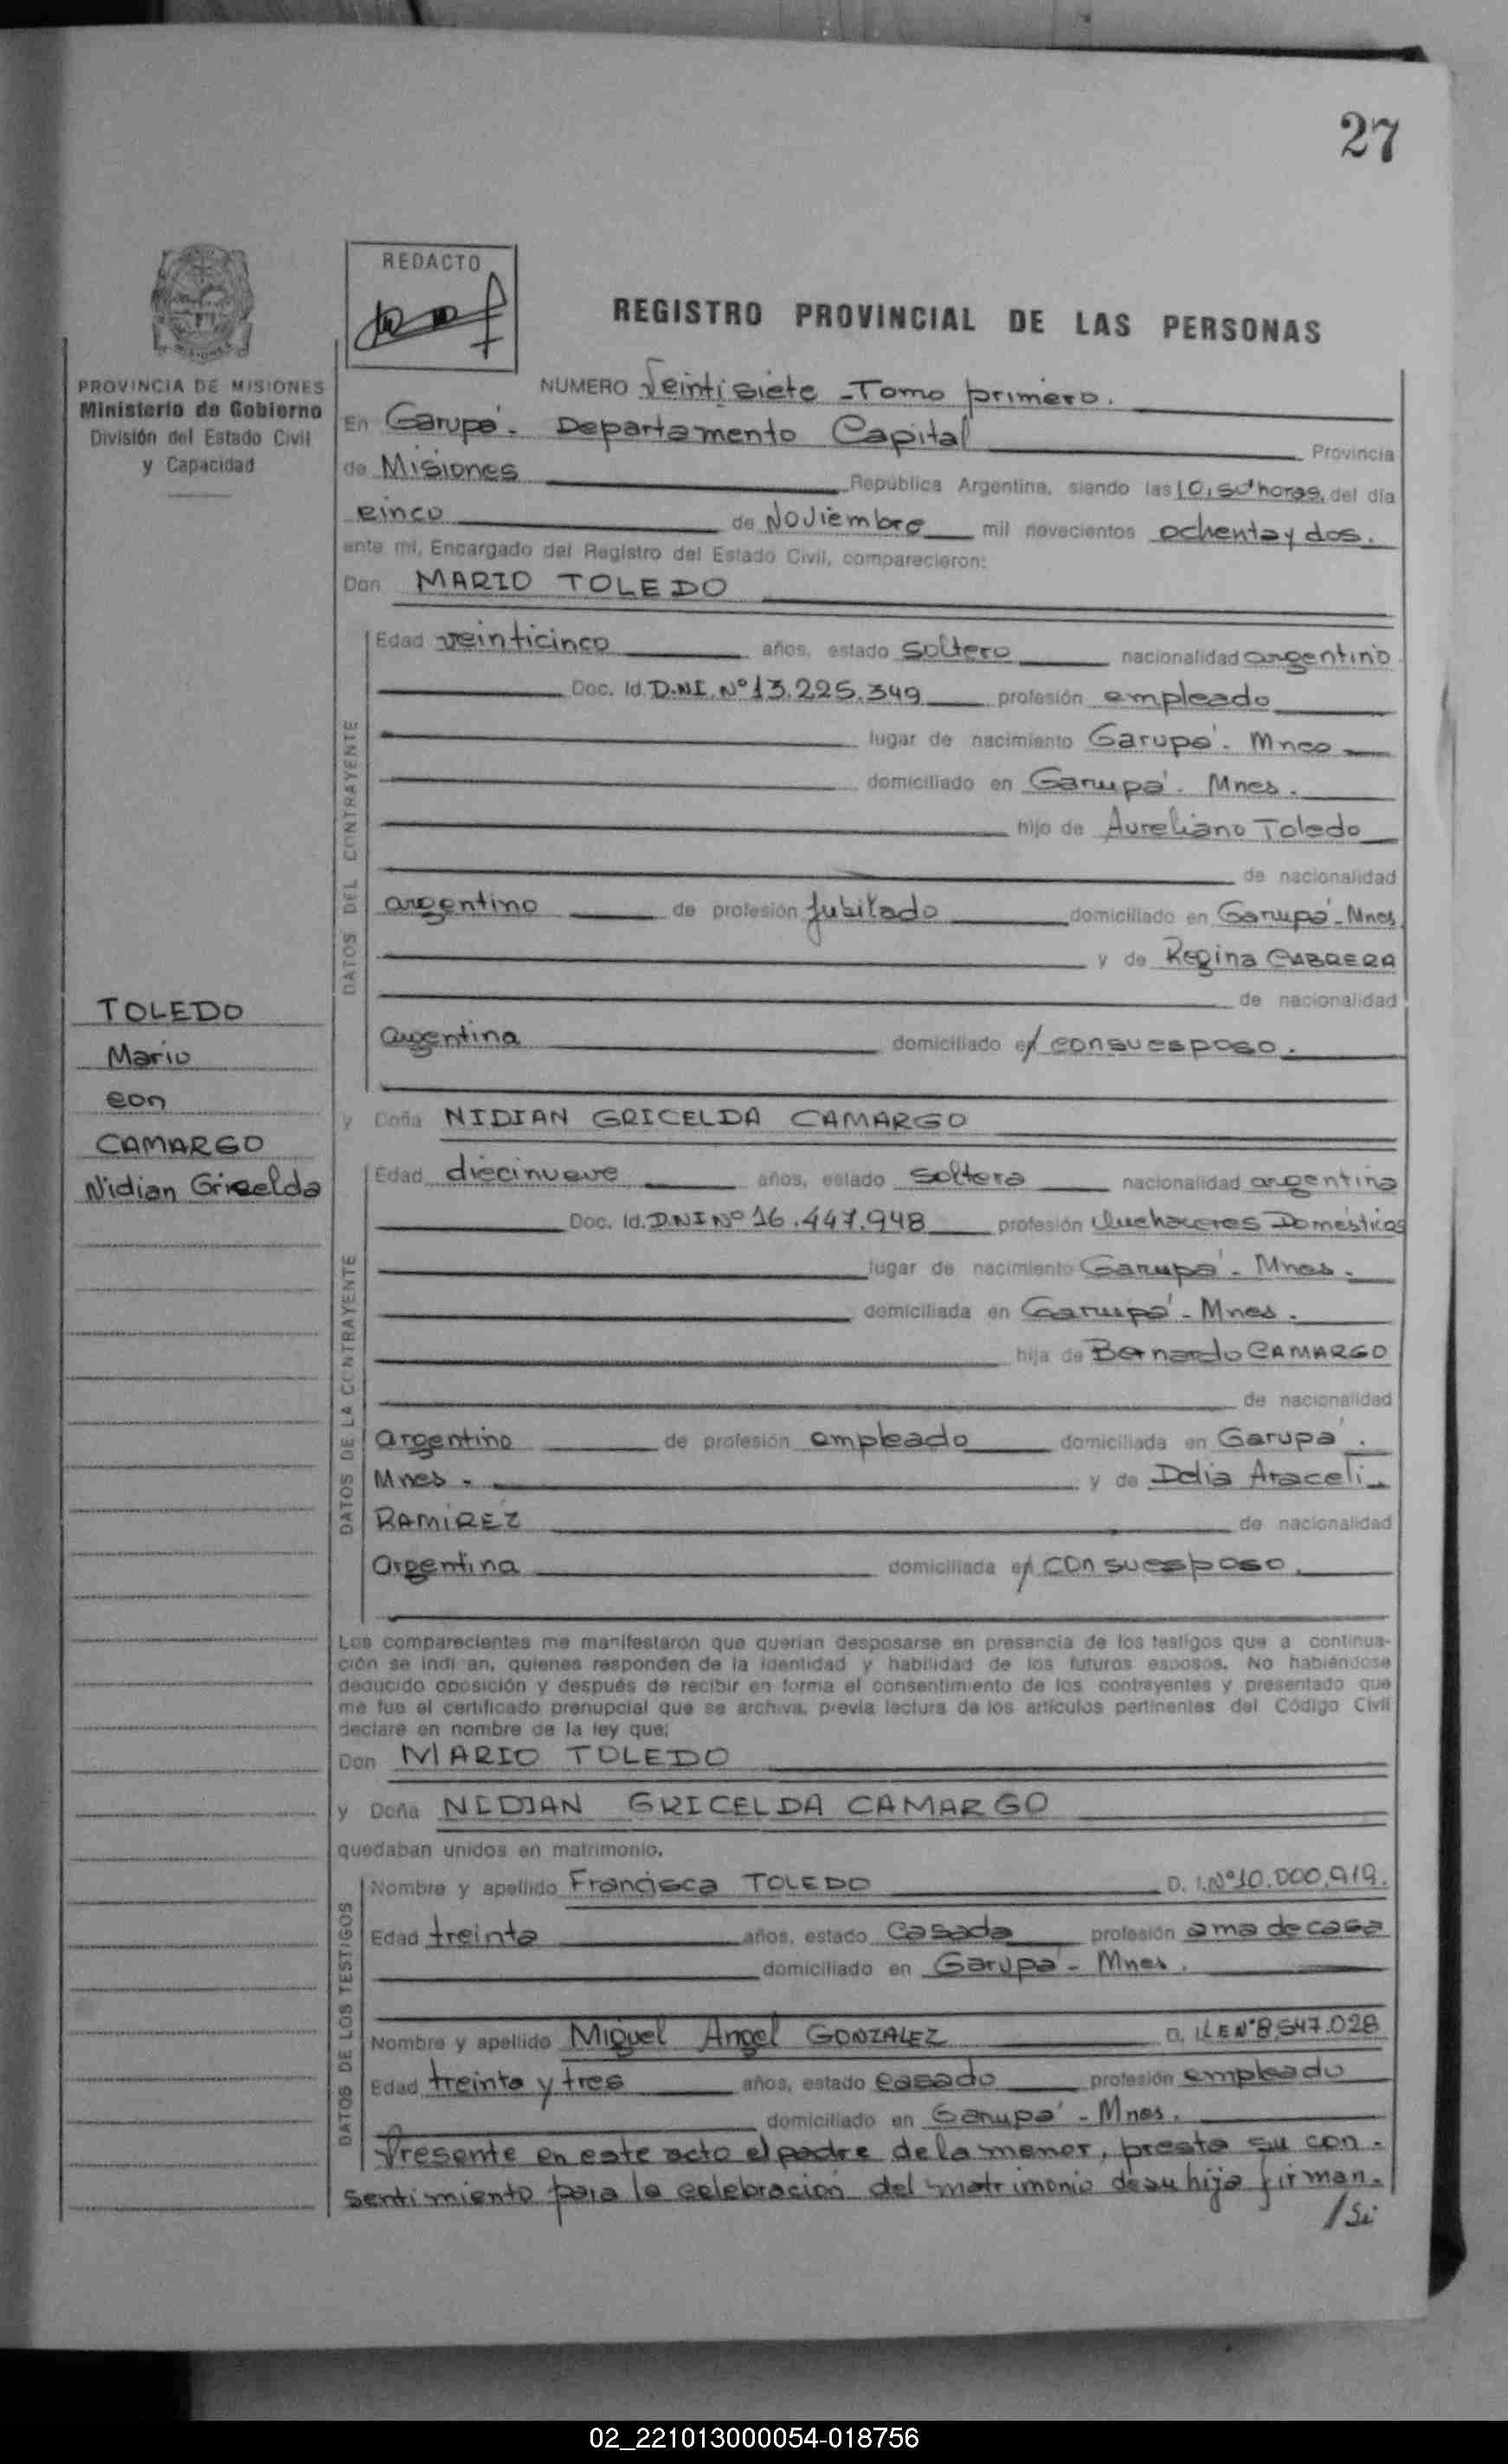 27
REDACTO
REGISTRO PROVINCIAL DE LAS PERSONAS
PROVINCIA DE MISIONES
Ministerio de Gobierno
División del Estado Civil
y Capacidad
NUMERO Veintisiete - Tomo primero.
En Garupá - Departamento Capital Provincia
de Misiones República Argentina, siendo las horas, del día
cinco de Noviembre mil novecientos ochenta y dos.
ante mi, Encargado del Registro del Estado Civil, comparecieron:
Don MARIO TOLEDO
DATOS DEL CONTRAYENTE
Edad veinticinco años, estado soltero nacionalidad argentino
Doc. Id. D.N.I. Nº 13.225.349 profesión empleado
lugar de nacimiento Garupá - Mnes
domiciliado en Garupá - Mnes.
hijo de Aureliano Toledo
de nacionalidad
argentino de profesión jubilado domiciliado en Garupá - Mnes
y de Regina CABRERA
de nacionalidad
argentina domiciliado e/ con su esposo.
TOLEDO
Mario
con
CAMARGO
Nidian Gricelda
y Doña NIDIAN GRICELDA CAMARGO
DATOS DE LA CONTRAYENTE
Edad diecinueve años, estado soltera nacionalidad argentina
Doc. Id. D.N.I Nº 16.447.948 profesión Quehaceres Domésticos
lugar de nacimiento Garupá - Mnes.
domiciliada en Garupá - Mnes.
hija de Bernardo CAMARGO
de nacionalidad
argentino de profesión empleado domiciliada en Garupá.
Mnes - y de Delia Araceli
RAMIREZ de nacionalidad
Argentina domiciliada e/ con su esposo.
Los comparecientes me manifestaron que querían desposarse en presencia de los testigos que a continua-
ción se indi an, quienes responden de la identidad y habilidad de los futuros esposos. No habiéndose
deducido oposición y después de recibir en forma el consentimiento de los contrayentes y presentado que
me fue el certificado prenupcial que se archiva, previa lectura de los artículos pertinentes del Código Civil
declaré en nombre de la ley que:
Don MARIO TOLEDO
y Doña NIDIAN GRICELDA CAMARGO
quedaban unidos en matrimonio.
DATOS DE LOS TESTIGOS
Nombre y apellido Francisca TOLEDO D. I. Nº 10.000.919.
Edad treinta años, estado Casada profesión ama de casa
domiciliado en Garupá - Mnes.
Nombre y apellido Miguel Angel GONZALEZ D. I. L E Nº 8.547.028
Edad treinta y tres años, estado casado profesión empleado
domiciliado en Garupá - Mnes.
Presente en este acto el padre de la menor, presta su con-
sentimiento para la celebración del matrimonio de su hija firman-
/Si
02_221013000054-018756